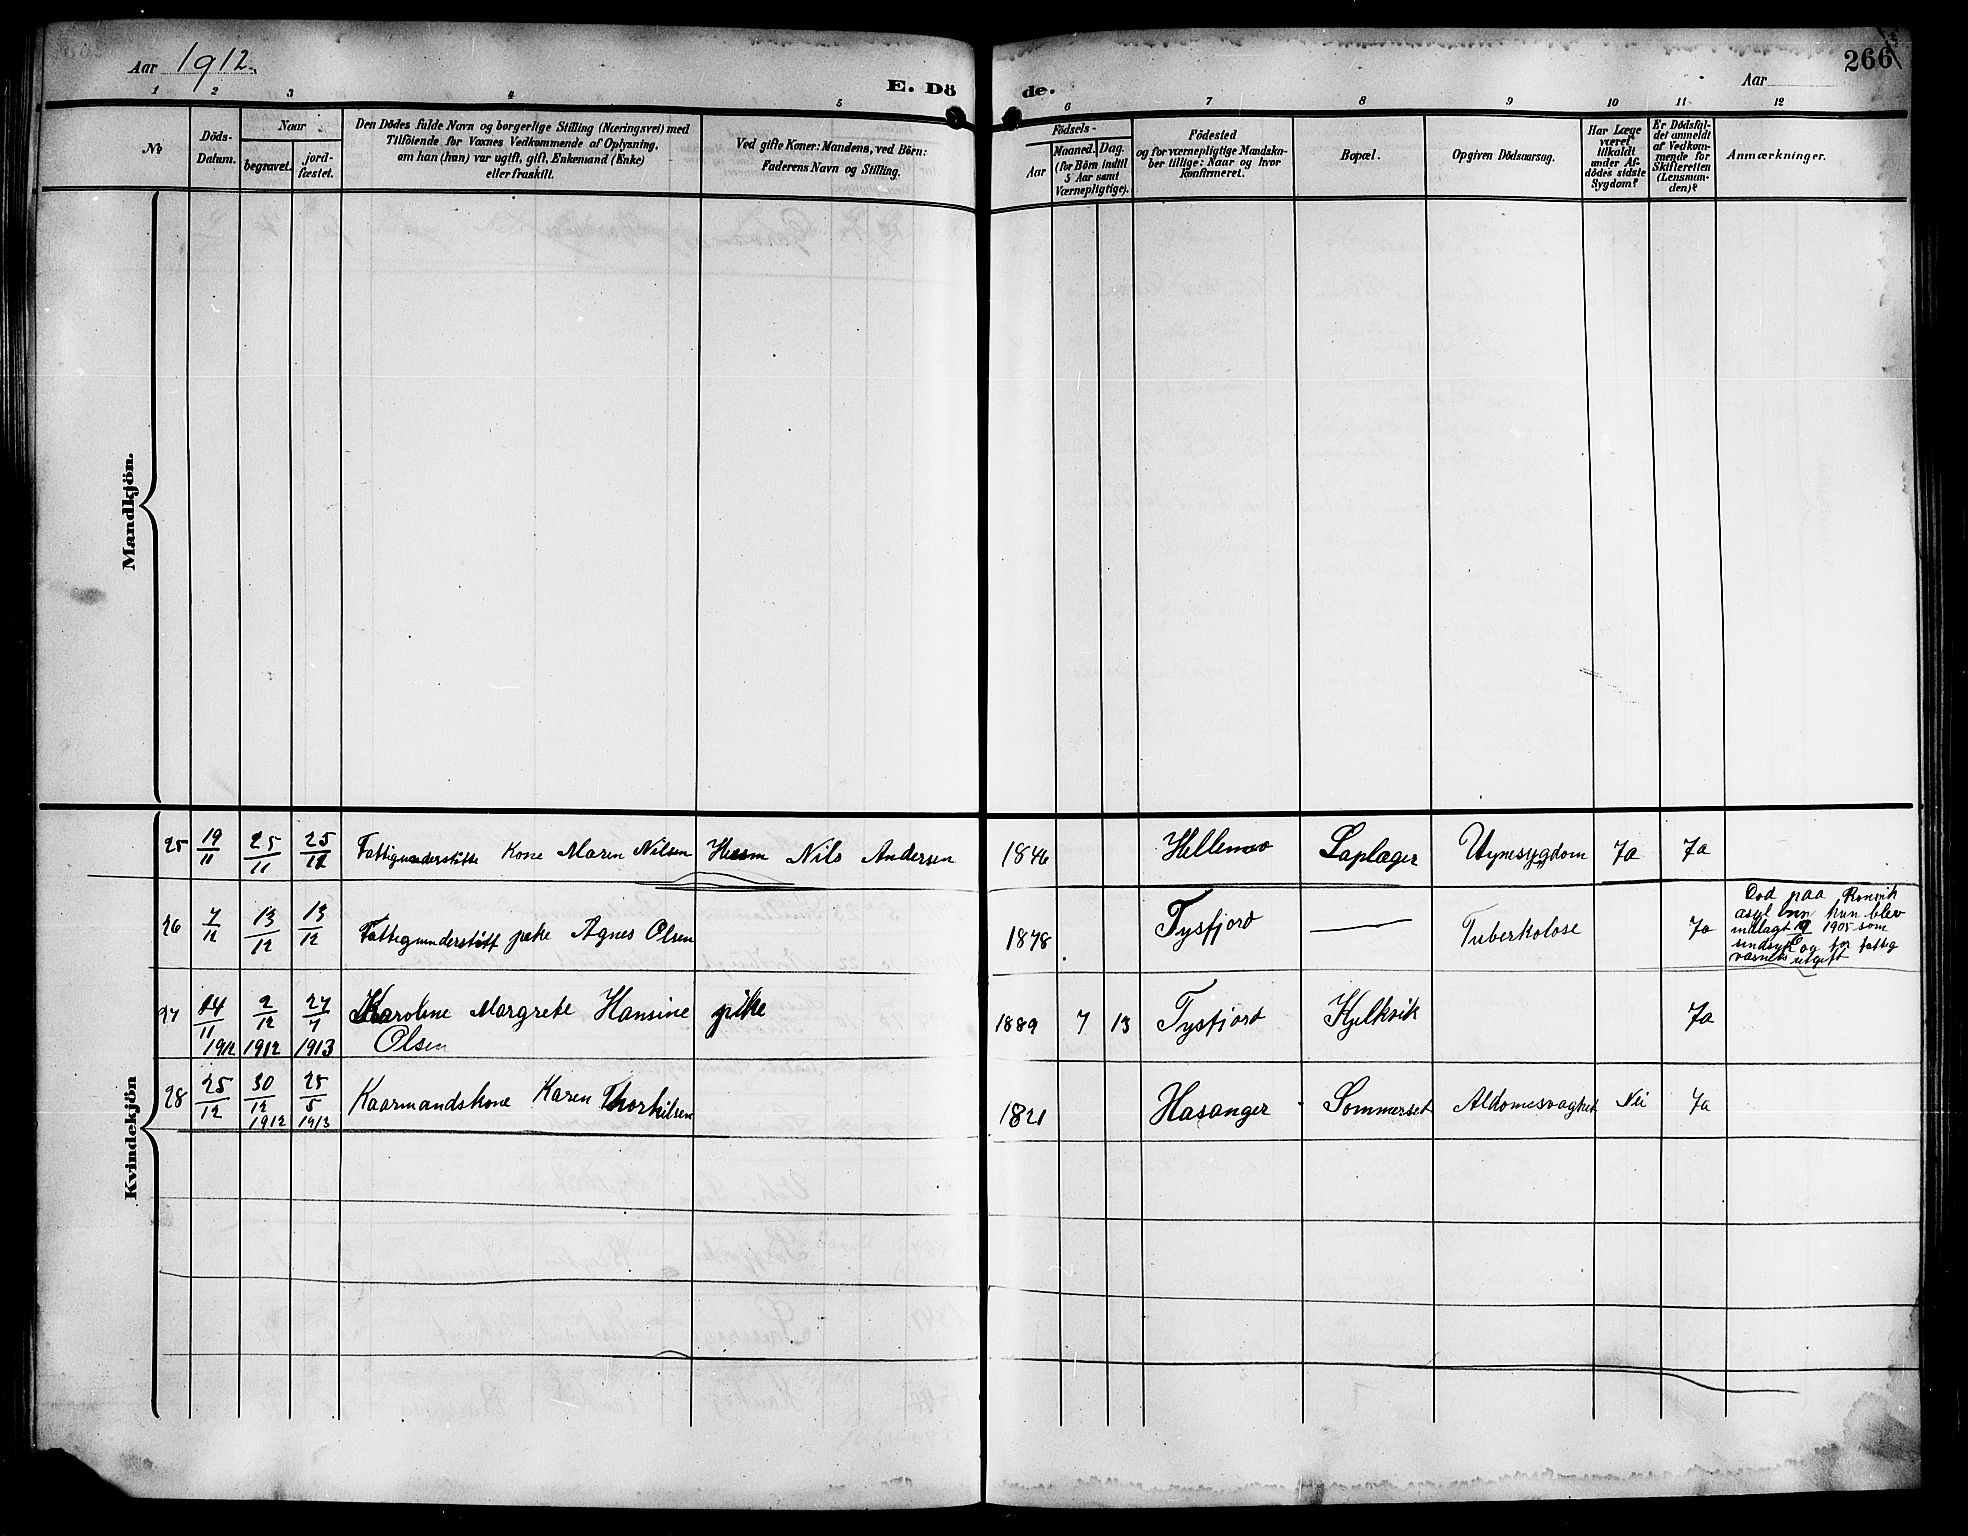 Aar 1912.
E. Dö de.
Aar
266
1 2 3 4 5 6 7 8 9 10 11 12
№
Döds-Datum.
Naar
begravet.
jord-fæstet.
Den Dödes fulde Navn og borgerlige Stilling (Næringsvei) med
Tilföiende for Voxnes Vedkommende af Oplysning,
om han (hun) var ugift, gift, Enkemand (Enke)
eller fraskilt.
Ved gifte Koner: Mandens, ved Börn:
Faderens Navn og Stilling.
Födsels-
Aar
Maaned. Dag.
(for Börn indtil
5 Aar samt
Værnepligtige).
Födested
og for værnepligtige Mandska-
ber tillige: Naar og hvor
Konfirmeret.
Bopæl.
Opgiven Dödsaarsag.
Har Læge
været
tilkaldt
under Af-
dödes sidste
Sygdom?
Er Dödsfal-
det anmeldt
af Vedkom-
mende for
Skifteretten
(Lensman-
den)?
Anmærkninger.
Mandkjön.
Kvindekjön
25 19/11 25/11 25/11 Fattigunderstøtte Kone Maren Nilsen Nils Andersen 1846 Hellemo Laplager Ja Ja
26 7/12 13/12 13/12 Fattigunderstøtt pike Agnes Olsen 1878 Tysfjord — Tuberkolose Ja
Død paa Rønvik
asyl hun blev
indlagt 1905 som
sindsyk og for fattig
væsnets utgift
27 14/11 1912 2/12 1912 27/7 1913 Karoline Margrete Hansine pike 1889 7 13 Tysfjord Kjelkvik Ja
Olsen
28 25/12 30/12 1912 25/5 1913 Kaarmandskone Karen Thorkilsen 1821 Hasanger Sommerset Aldomssvaghet Nei Ja